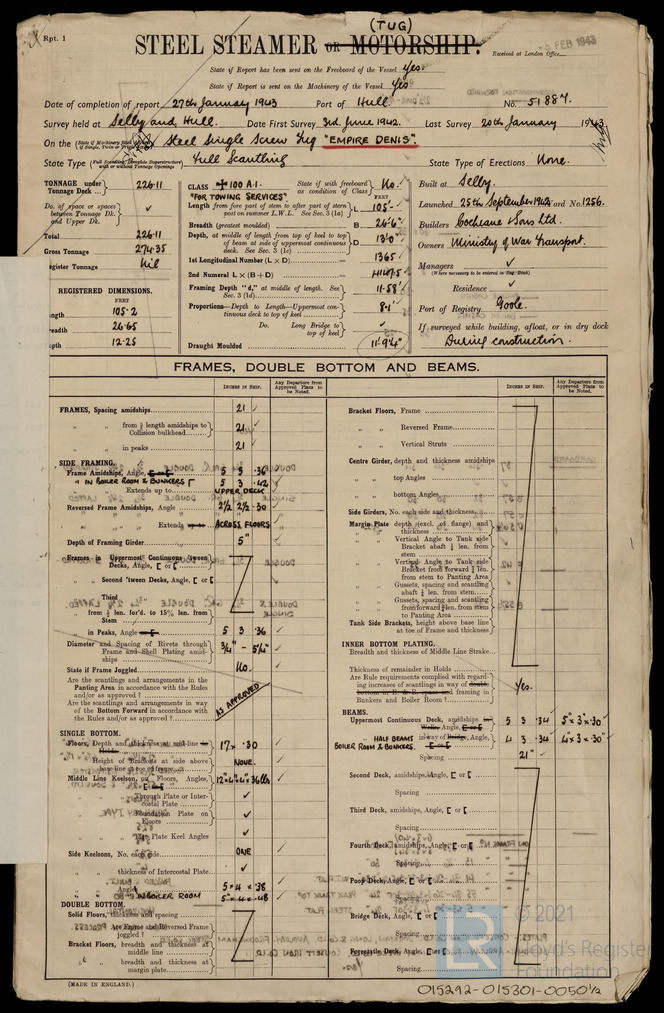 Rpt. 1
(TUG)
STEEL STEAMER OR MOTORSHIP.
Received at London Office
5 FEB 1943
State if Report has been sent on the Freeboard of the Vessel Yes
State if Report is sent on the Machinery of the Vessel Yes
Date of completion of report 27th January 1943 Port of Hull. No. 51887.
Survey held at Selby and Hull. Date First Survey 3rd June 1942. Last Survey 20th January 1943
On the Steel Single Screw Tug "EMPIRE DENIS".
State Type Full Scantling State Type of Erections None.
TONNAGE under Tonnage Deck 226.11
Do. of space or spaces between Tonnage Dk. and Upper Dk. ✓
Total 226.11
Gross Tonnage 274.35
Register Tonnage Nil
REGISTERED DIMENSIONS.
FEET
105.2
26.65
12.25
CLASS ✠ 100 A.1. State if with freeboard as condition of Class No.
"FOR TOWING SERVICES"
FEET
Length from fore part of stem to after part of stern post on summer L.W.L. See Sec. 3 (1a) L 105'
Breadth (greatest moulded) B 26'6"
Depth, at middle of length from top of keel to top of beam at side of uppermost continuous deck. See Sec. 3 (1c) D 13'0"
1st Longitudinal Number (L × D) 1365
2nd Numeral L × (B + D)
Framing Depth "d," at middle of length. See Sec. 3 (1d) 11.58'
Proportions—Depth to Length—Uppermost continuous deck to top of keel 8.1
Do. Long Bridge to top of keel
Draught Moulded 11'.9¼"
Built at Selby.
Launched 25th September 1942 Yard No. 1256.
Builders Cochrane & Sons Ltd.
Owners Ministry of War Transport.
Managers ✓
(Where necessary to be entered in Reg. Book)
Residence ✓
Port of Registry Goole.
If surveyed while building, afloat, or in dry dock
During construction.
FRAMES, DOUBLE BOTTOM AND BEAMS.
INCHES IN SHIP.
Any Departure from Approved Plans to be Noted.
FRAMES, Spacing amidships 21 ✓
" " from ⅗ length amidships to Collision bulkhead 21 ✓
" " in peaks 21 ✓
SIDE FRAMING.
Frame Amidships, Angle, 5 3 .36 ✓
" IN BOILER ROOM & BUNKERS 5 3 .42 ✓
Extends up to UPPER DECK
Reversed Frame Amidships, Angle 2½ 2½ .30
" " Extends ACROSS FLOORS
Depth of Framing Girder 5"
Frames in Uppermost Continuous 'tween Decks, Angle, [ or [
" Second 'tween Decks, Angle, [ or [
Third " " "
from ⅗ len. for'd. to 15% len. from Stem
" in Peaks, Angle 5 3 .36 ✓
Diameter and Spacing of Rivets through Frame and Shell Plating amidships ¾" - 5¼" ✓
State if Frame Joggled No. ✓
Are the scantlings and arrangements in the Panting Area in accordance with the Rules and/or as approved?
Are the scantlings and arrangements in way of the Bottom Forward in accordance with the Rules and/or as approved?
AS APPROVED
SINGLE BOTTOM.
Floors, Depth and thickness at mid-line in Holds 17 × .30
Height of Brackets at side above base line at toe of frame NONE.
Middle Line Keelson, on Floors, Angles,
Through Plate or Intercostal Plate ✓
Foundation Plate on Floors ✓
Flat Plate Keel Angles ✓
Side Keelsons, No. each side ONE
" thickness of Intercostal Plate ✓
Angle 5 × 4 × .38
" IN BOILER ROOM 5" × 4 × .48 ✓
DOUBLE BOTTOM.
Solid Floors, thickness and spacing
" Are Frame and Reversed Frame joggled?
Bracket Floors, breadth and thickness at middle line
" " breadth and thickness at margin plate
INCHES IN SHIP.
Any Departure from Approved Plans to be Noted.
Bracket Floors, Frame
" " Reversed Frame
" " Vertical Struts
Centre Girder, depth and thickness amidships
" " top Angles
" " bottom Angles
Side Girders, No. each side and thickness
Margin Plate depth (excl. of flange) and thickness
" " Vertical Angle to Tank side Bracket abaft ¼ len. from stem
" " Vertical Angle to Tank side Bracket from forward ¼ len. from stem to Panting Area
" " Gussets, spacing and scantling abaft ¼ len. from stem
" " Gussets, spacing and scantling from forward ¼ len. from stem to Panting Area
Tank Side Brackets, height above base line at toe of Frame and thickness
INNER BOTTOM PLATING.
Breadth and thickness of Middle Line Strake
Thickness of remainder in Holds
Are Rule requirements complied with regarding increases of scantlings in way of double bottom in E. & B. space and framing in Bunkers and Boiler Room? Yes.
BEAMS.
Uppermost Continuous Deck, amidships Angle, 5 3 .34 5" × 3" × .30 ✓
" HALF BEAMS in way of Bridge, Angle, 4 3 .34 4" × 3" × .30 ✓
BOILER ROOM & BUNKERS.
21" ✓
Second Deck, amidships, Angle, [ or [
Spacing
Third Deck, amidships, Angle, [ or [
Spacing
Fourth Deck, amidships, Angle, [ or [
Spacing
Poop Deck, Angle, [ or [
Spacing
Bridge Deck, Angle, [ or [
Spacing
Forecastle Deck, Angle, [ or [
Spacing
(MADE IN ENGLAND.)
© 2021
Lloyd's Register
Foundation
015292-015301-0050½